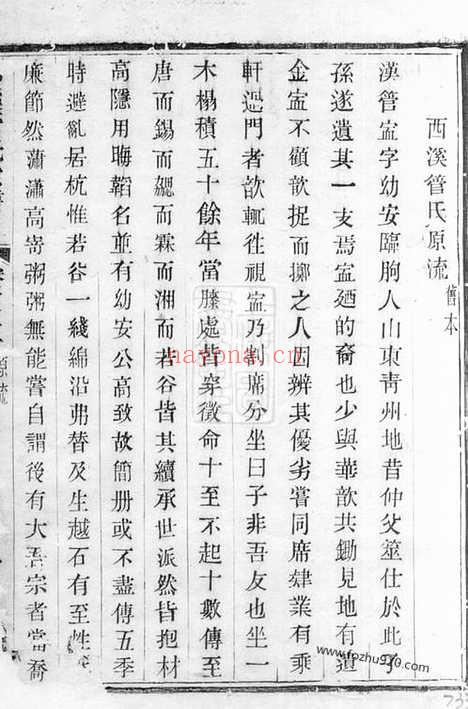 西溪管氏原流 舊本
漢管寍字幼安臨朐人山東青州地昔仲父筮仕於此子
孫遂遺其一支焉寍廼的裔也少與華歆共鋤見地有遺
金寍不顧歆捉而擲之人因辨其優劣嘗同席肄業有乘
軒過門者歆輒徃視寍乃割席分坐曰子非吾友也坐一
木榻積五十餘年當膝處皆穿徵命十至不起十數傳至
唐而錫而勰而霖而湘而若谷皆其續承世派然皆抱材
高隱用晦韜名並有幼安公高致故簡册或不盡傳五季
時避亂居杭惟若谷一綫綿沿弗替及生越石有至性
廉節然蕭瀟高寄粥粥無能嘗自謂後有大吾宗者當喬
原流
nayona.cn
www.fozhu920.com